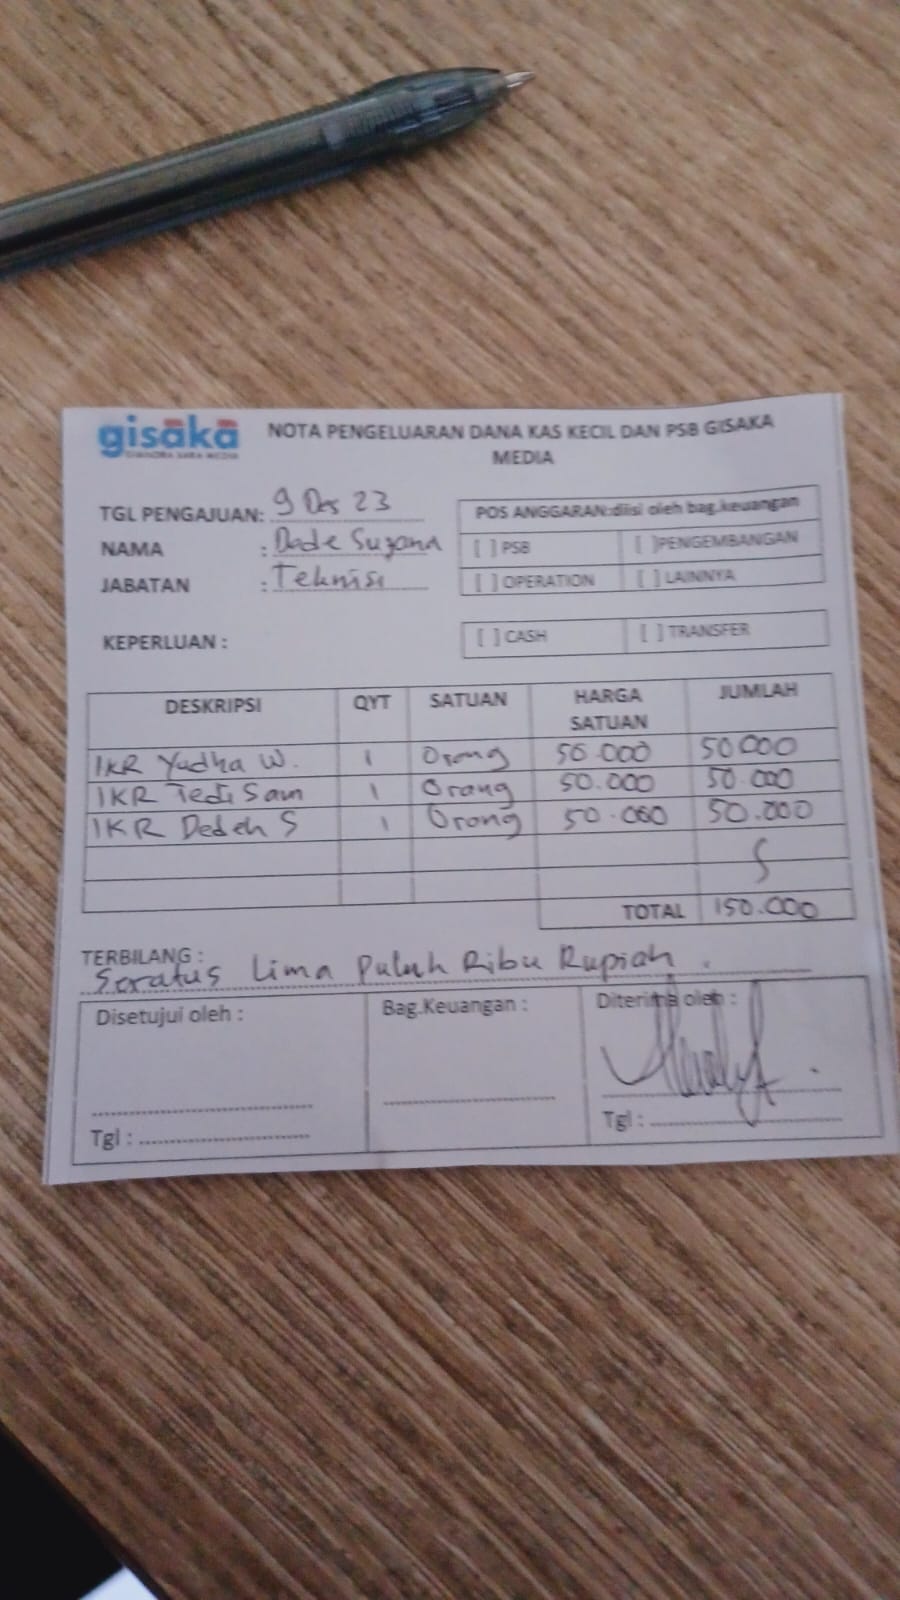 gisāka NOTA PENGELUARAN DANA KAS KECIL DAN PSB GISAKA
MEDIA
TGL PENGAJUAN: 9 Des 23
NAMA : Dade Suyana
JABATAN : Teknisi
KEPERLUAN :
POS ANGGARAN:diisi oleh bag.keuangan
[ ] PSB [ ]PENGEMBANGAN
[ ] OPERATION [ ] LAINNYA
[ ] CASH [ ] TRANSFER
DESKRIPSI QYT SATUAN HARGA SATUAN JUMLAH
IKR Yudha W. 1 Orang 50.000 50000
IKR Tedi Sam 1 Orang 50.000 50.000
IKR Dedeh S 1 Orong 50.000 50.000
TOTAL 150.000
TERBILANG :
Seratus Lima Puluh Ribu Rupiah .
Disetujui oleh : Bag.Keuangan : Diterima oleh :
Tgl : Tgl :